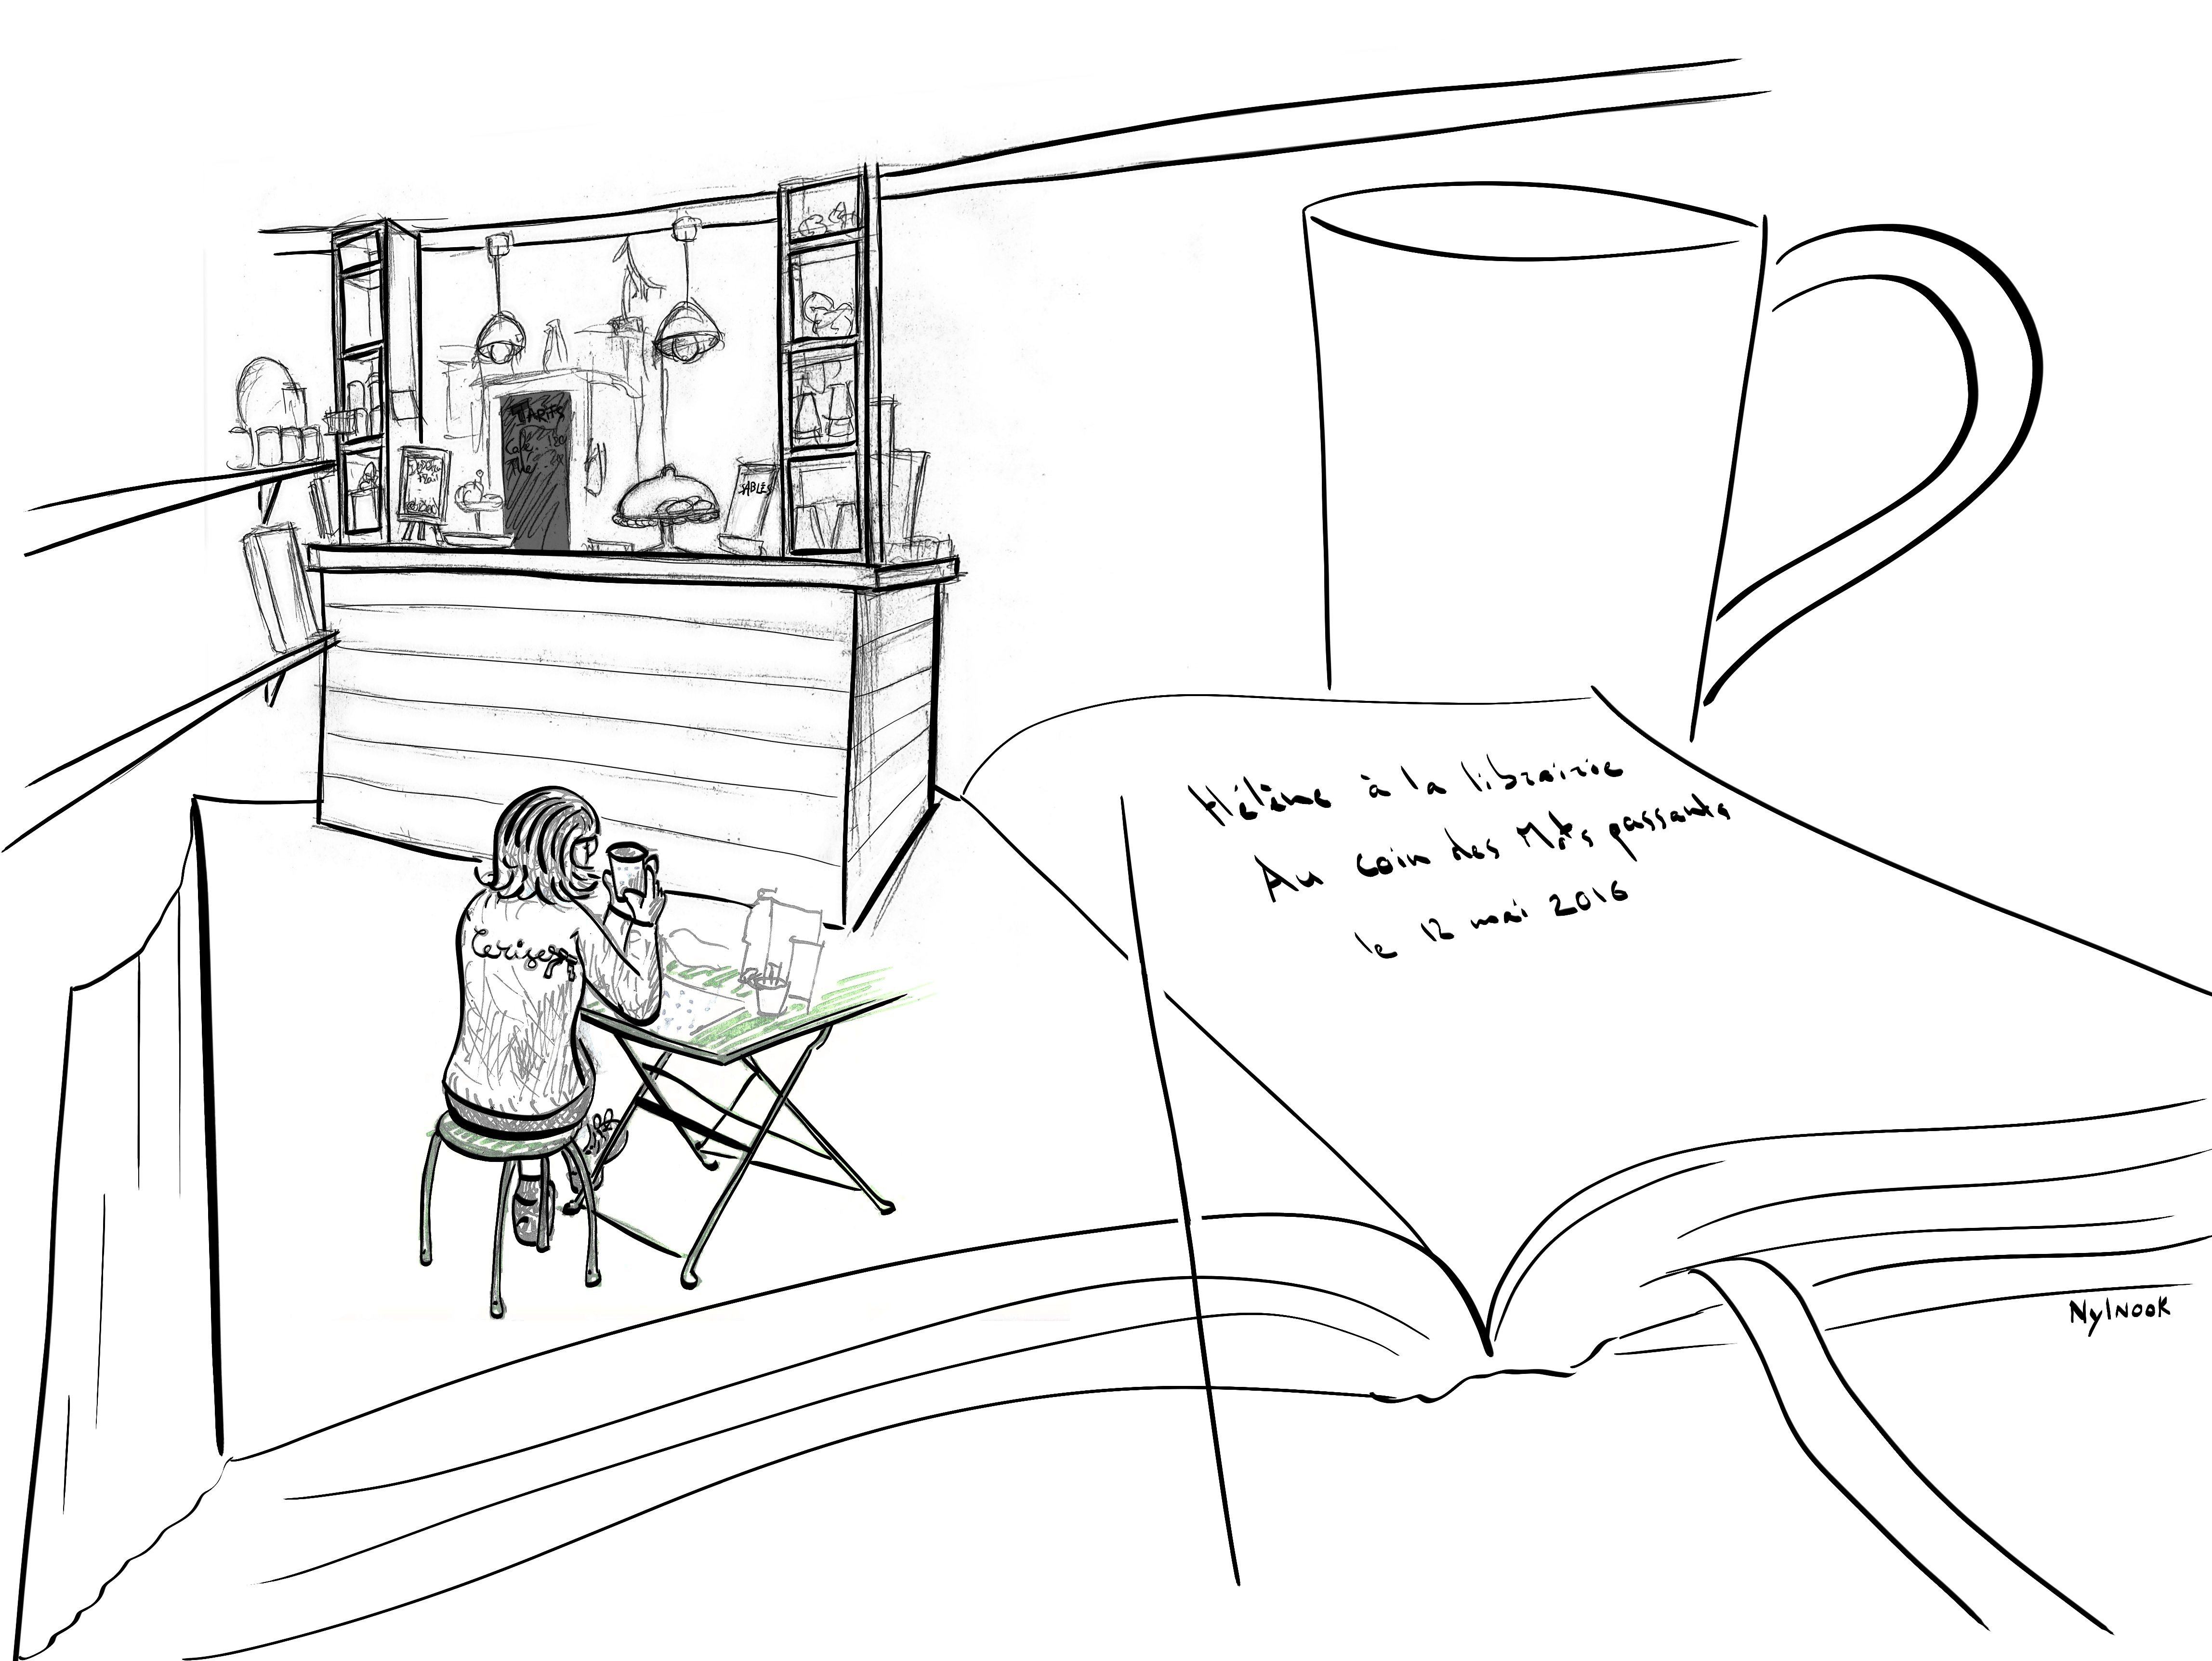 TARIFS
Café
Thé
SABLÉS
Cerises
Hélène à la librairie
Au coin des Mots passants
le 12 mai 2016
Nylnook